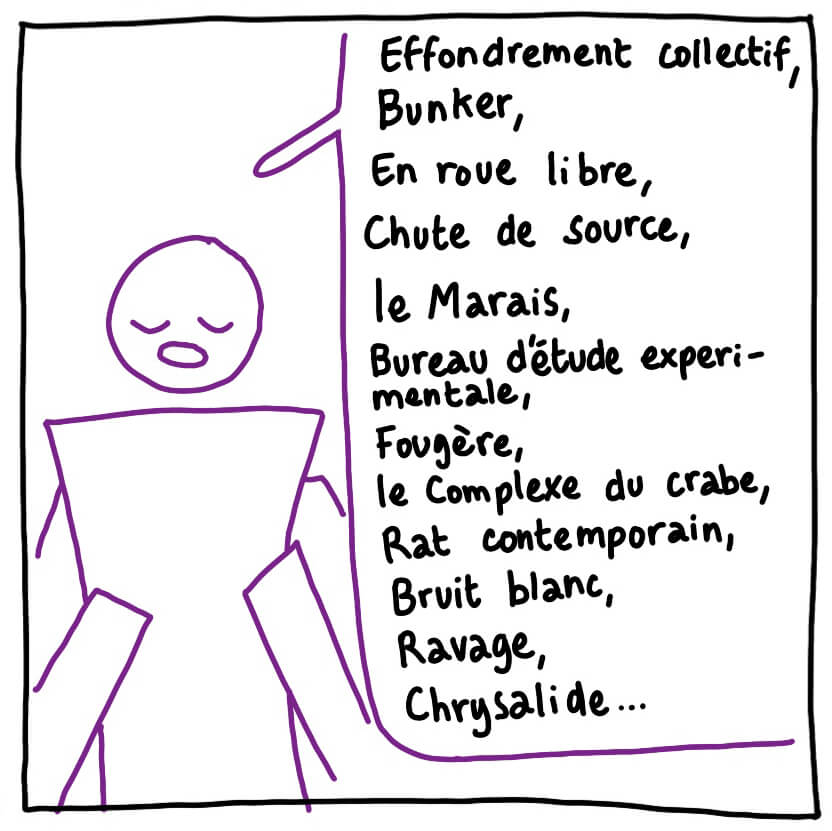 Effondrement collectif,
Bunker,
En roue libre,
Chute de source,
le Marais,
Bureau d'étude experi-
mentale,
Fougère,
le Complexe du crabe,
Rat contemporain,
Bruit blanc,
Ravage,
Chrysalide...